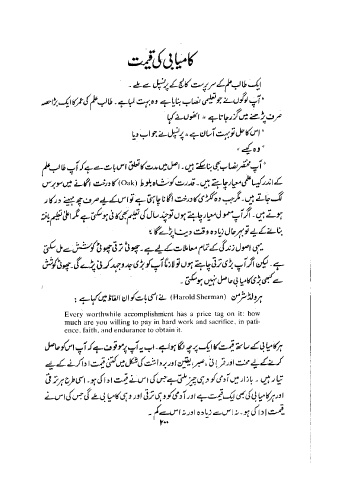 کامیابی کی قیمت
ایک طالب علم کے سرپرست کالج کے پرنسپل سے ملے۔
"آپ لوگوں نے جو تعلیمی نصاب بنایا ہے وہ بہت لمبا ہے۔ طالب علم کی عمر کا ایک بڑا حصہ
صرف پڑھنے میں گزر جاتا ہے" انھوں نے کہا
"اس کا حل تو بہت آسان ہے" پرنسپل نے جواب دیا
"وہ کیسے"
"آپ مختصر نصاب بھی بنا سکتے ہیں۔ اصل میں مدت کا تعلق اس بات سے ہے کہ آپ طالب علم
کے اندر کیسا علمی معیار چاہتے ہیں۔ قدرت کو شاہ بلوط (Oak) کا درخت اگانے میں سو برس
لگ جاتے ہیں۔ مگر جب وہ ککڑی کا درخت اگانا چاہتی ہے تو اس کے لیے صرف چھ مہینے درکار
ہوتے ہیں۔ اگر آپ معمولی معیار چاہتے ہوں تو چند سال کی تعلیم بھی کافی ہو سکتی ہے مگر اعلیٰ تعلیم یافتہ
بنانے کے لیے تو بہرحال زیادہ وقت دینا پڑے گا"
یہی اصول زندگی کے تمام معاملات کے لیے ہے۔ چھوٹی ترقی چھوٹی کوشش سے مل سکتی
ہے۔ لیکن اگر آپ بڑی ترقی چاہتے ہوں تو لازماً آپ کو بڑی جدوجہد کرنی پڑے گی۔ چھوٹی کوشش
سے کبھی بڑی کامیابی حاصل نہیں ہو سکتی۔
ہرولڈ شرمن (Harold Sherman) نے اسی بات کو ان الفاظ میں کہا ہے:
Every worthwhile accomplishment has a price tag on it: how
much are you willing to pay in hard work and sacrifice, in pati-
ence, faith, and endurance to obtain it.
ہر کامیابی کے ساتھ قیمت کا ایک پرچہ لگا ہوا ہے۔ اب یہ آپ پر موقوف ہے کہ آپ اس کو حاصل
کرنے کے لیے محنت اور قربانی، صبر، یقین اور برداشت کی شکل میں کتنی قیمت ادا کرنے کے لیے
تیار ہیں۔ بازار میں آدمی کو وہی چیز ملتی ہے جس کی اس نے قیمت ادا کی ہو۔ اسی طرح ہر ترقی
اور ہر کامیابی کی بھی ایک قیمت ہے اور آدمی کو وہی ترقی اور وہی کامیابی ملے گی جس کی اس نے
قیمت ادا کی ہو۔ نہ اس سے زیادہ اور نہ اس سے کم۔
۲۰۰